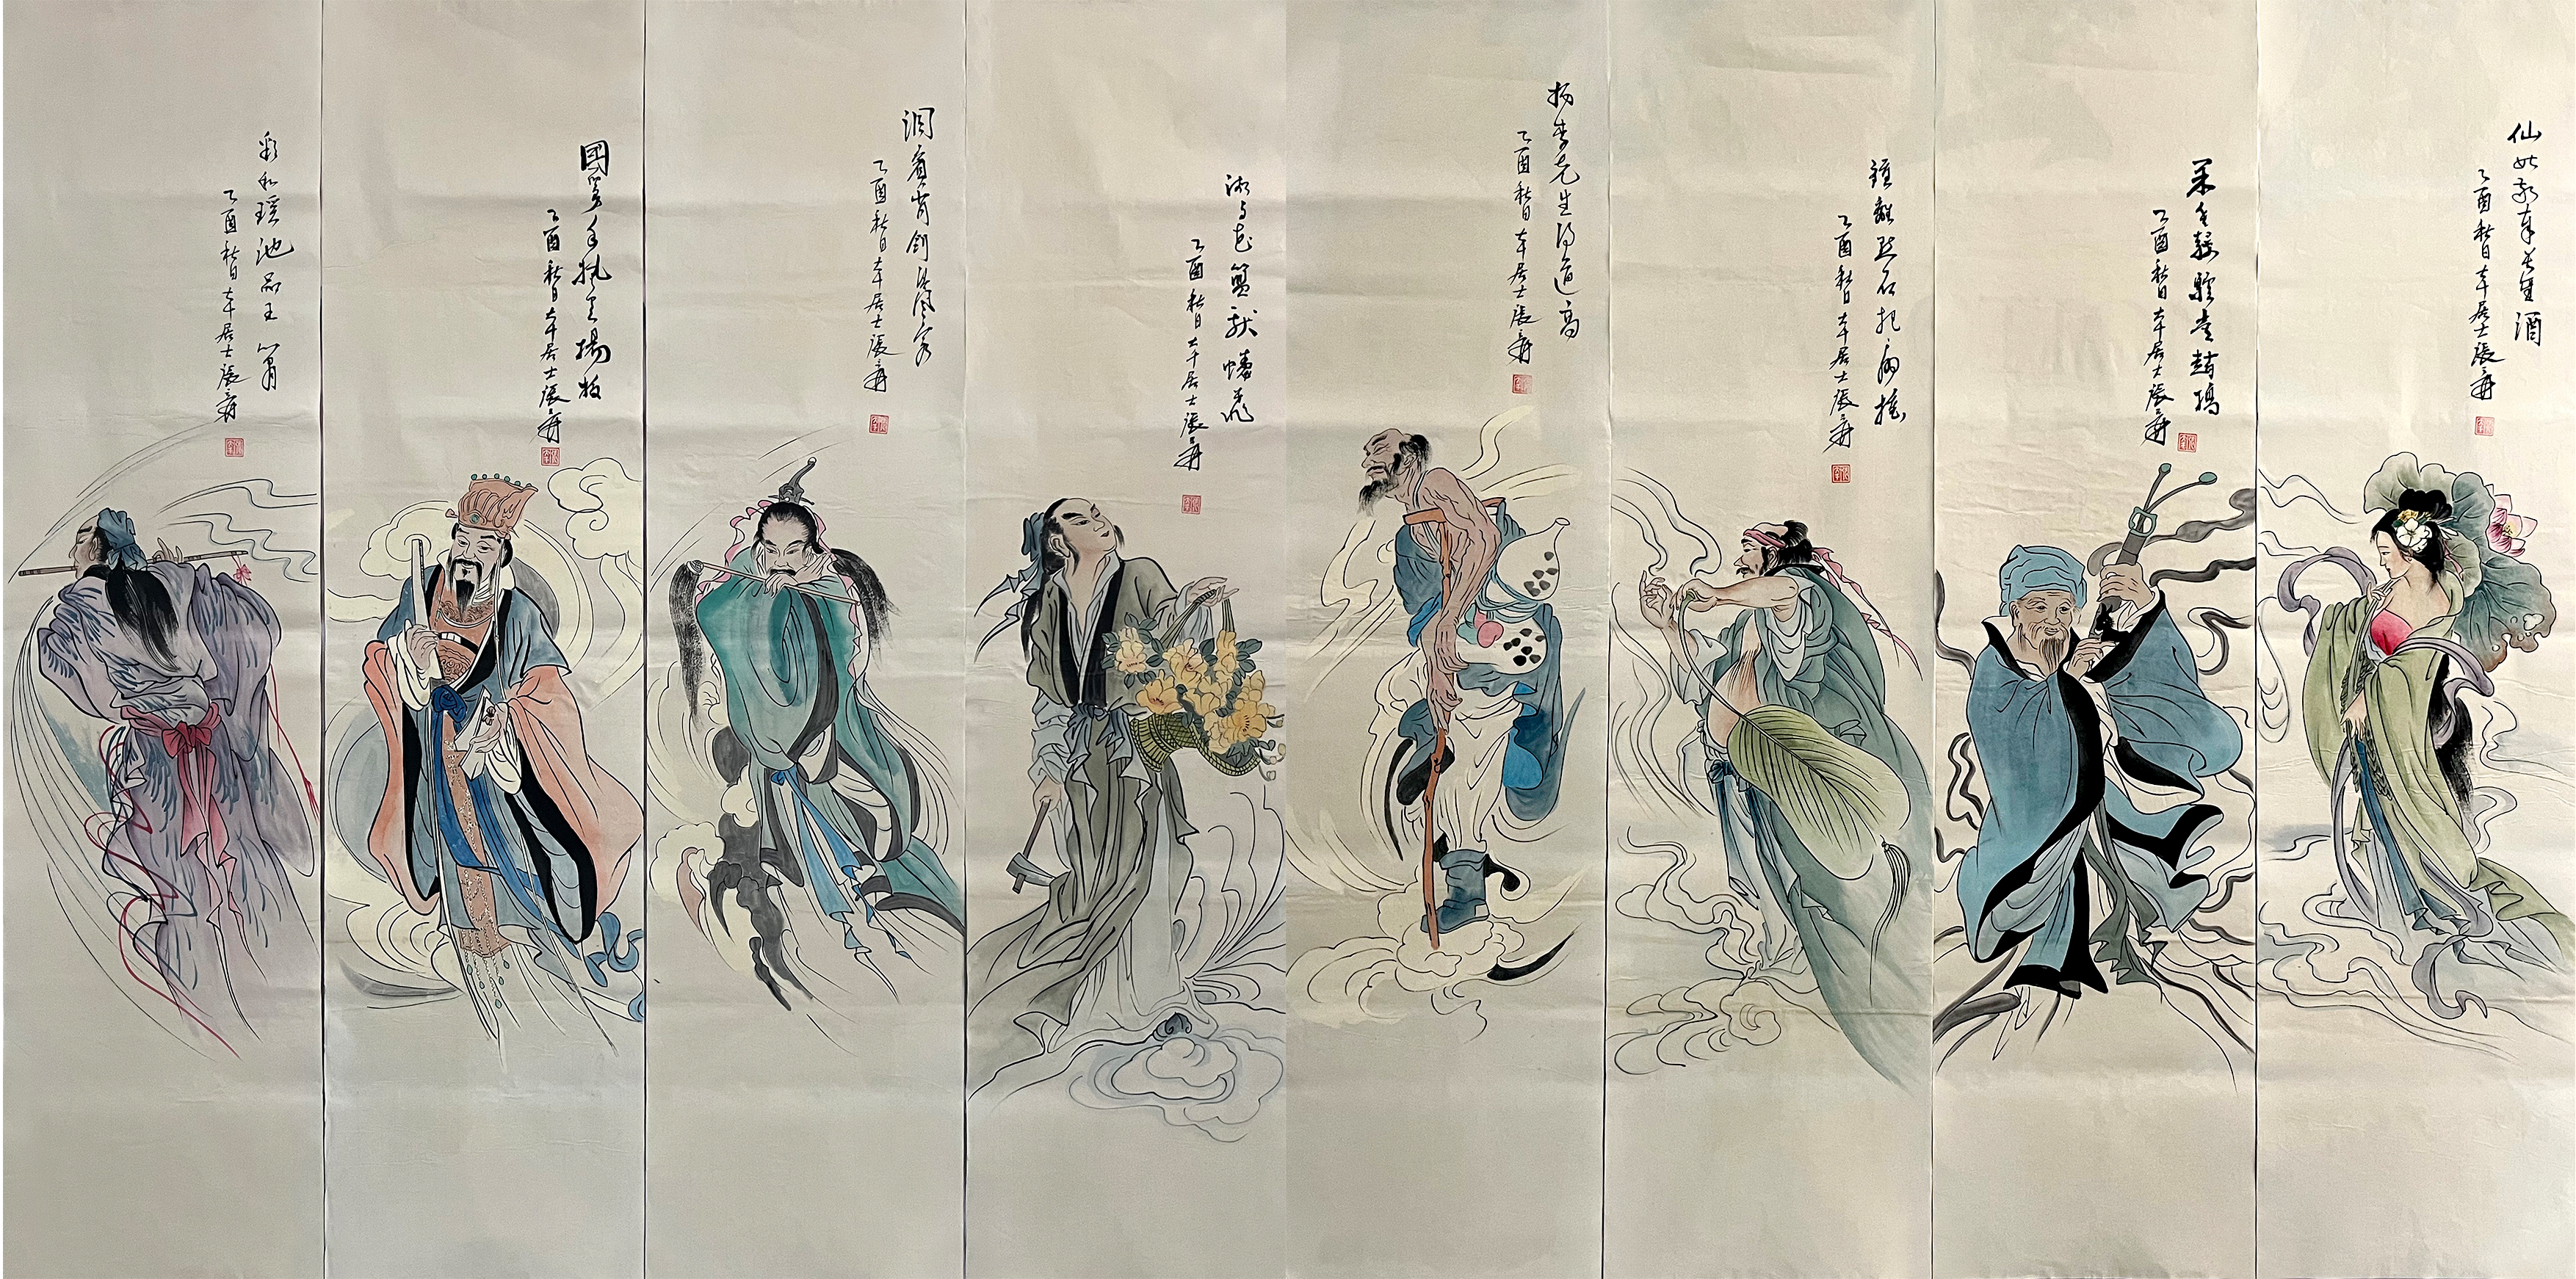 仙姑敬奉長生酒
乙酉秋日大千居士張爰
果老騎驢走趙橋
乙酉秋日大千居士張爰
鍾離点石把扇搖
乙酉秋日大千居士張爰
拐李先生得道高
乙酉秋日大千居士張爰
湘子花籃献蟠桃
乙酉秋日大千居士張爰
洞賓背劍清風客
乙酉秋日大千居士張爰
國舅手執雲揚板
乙酉秋日大千居士張爰
彩和瑤池品玉簫
乙酉秋日大千居士張爰